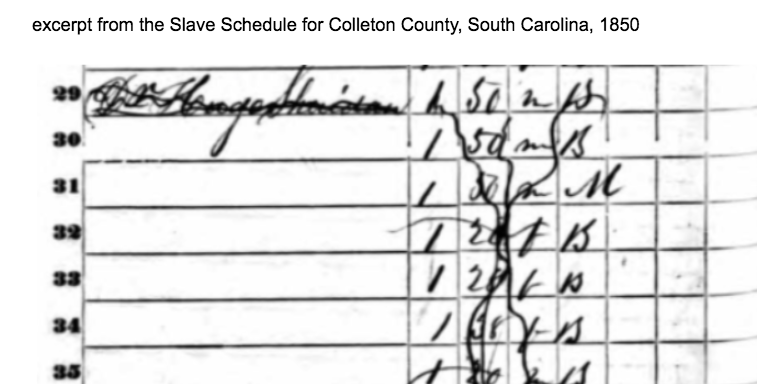 excerpt from the Slave Schedule for Colleton County, South Carolina, 1850
29 Dr. Huger 1 50 m B
30 1 50 m B
31 1 50 m M
32 1 f B
33 1 f B
34 1 f B
35 B